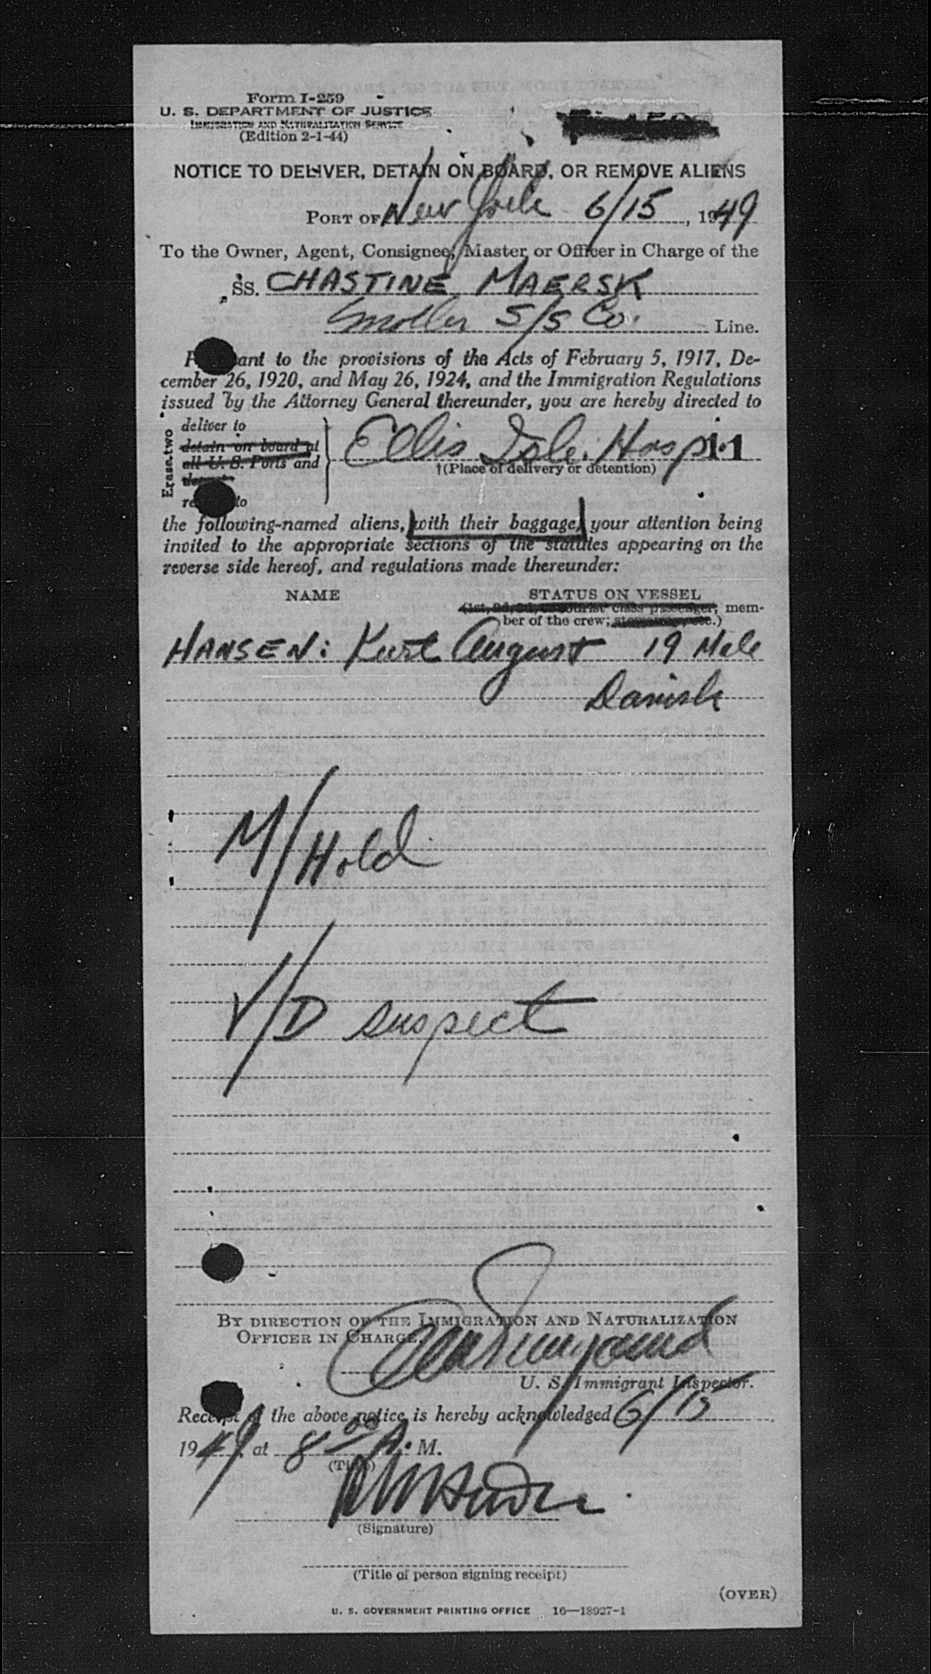 Form I-259
U. S. DEPARTMENT OF JUSTICE
IMMIGRATION AND NATURALIZATION SERVICE
(Edition 2-1-44)
NOTICE TO DELIVER, DETAIN ON BOARD, OR REMOVE ALIENS
PORT OF New York 6/15, 1949
To the Owner, Agent, Consignee, Master or Officer in Charge of the
SS. CHASTINE MAERSK
Moller S/S Co. Line.
ant to the provisions of the Acts of February 5, 1917, De-
cember 26, 1920, and May 26, 1924, and the Immigration Regulations
issued by the Attorney General thereunder, you are hereby directed to
Erase two
deliver to
detain on board at
all U. S. Ports and
Ellis Isle. Hosp
†(Place of delivery or detention)
to
the following-named aliens, with their baggage, your attention being
invited to the appropriate sections of the statutes appearing on the
reverse side hereof, and regulations made thereunder:
NAME STATUS ON VESSEL
(1st, 2d, 3d, or tourist class passenger; mem-
ber of the crew; stowaway, etc.)
HANSEN: Kurt August 19 Male
Danish
M/Hold
V/D suspect
BY DIRECTION OF THE IMMIGRATION AND NATURALIZATION
OFFICER IN CHARGE.
U. S. Immigrant Inspector.
Receipt of the above notice is hereby acknowledged 6/15
1949, at 8 00 A. M.
(Time)
(Signature)
(Title of person signing receipt)
(OVER)
U. S. GOVERNMENT PRINTING OFFICE 16—18927-1